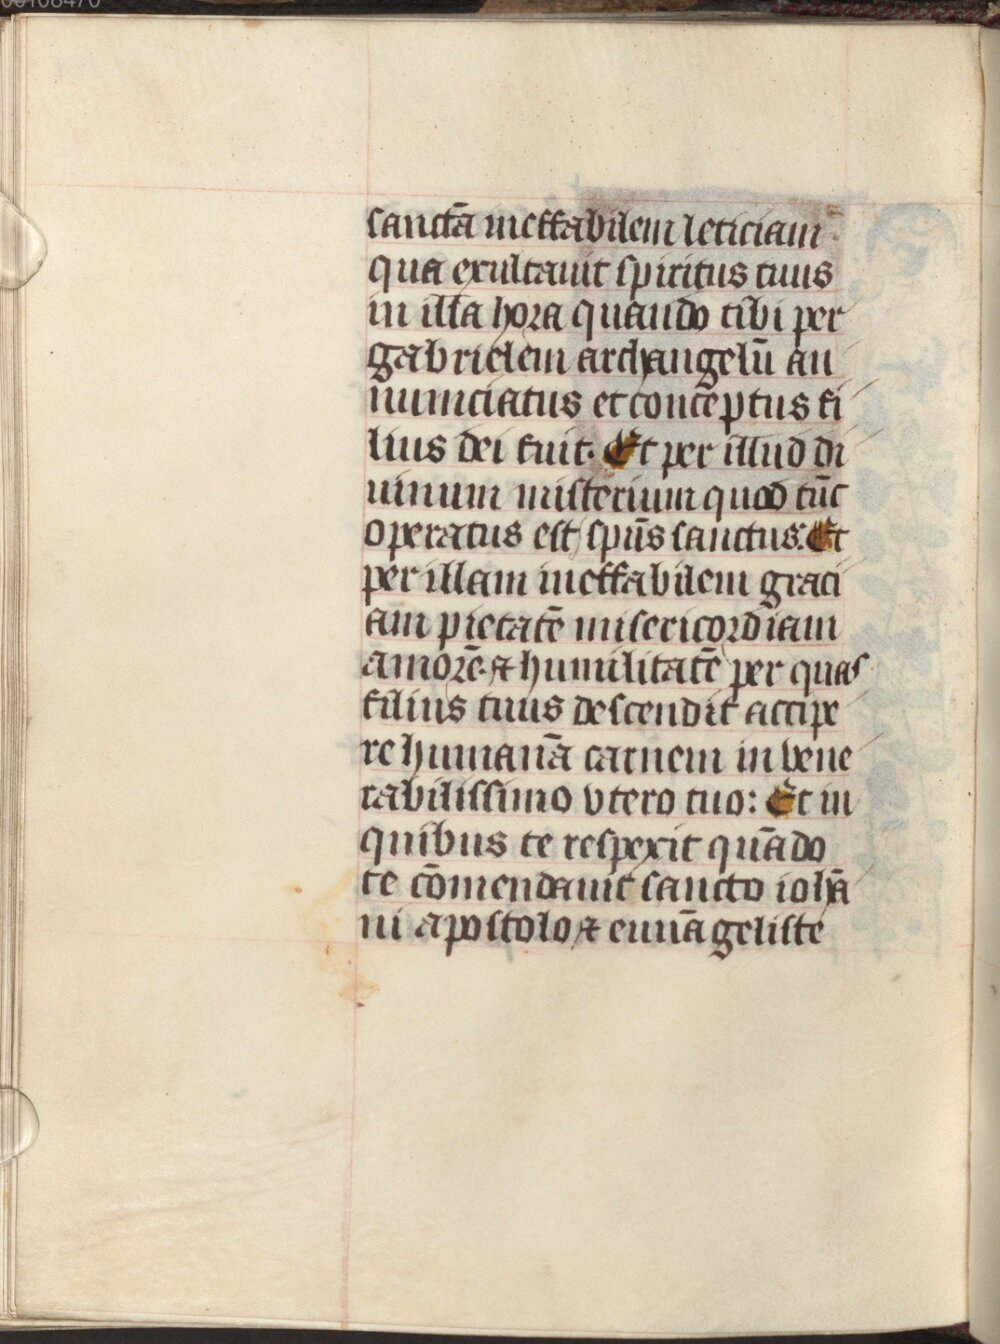 sanctā ineffabilem leticiam
qua exultauit spiritus tuus
in illa hora quando tibi per
gabrielem archangelū an
nunciatus et conceptus fi
lius dei fuit. Et per illud di
uinum misterium quod tūc
operatus est spūs sanctus. Et
per illam ineffabilem graci
am pietatē misericordiam
amorē ⁊ humilitatē per quas
filius tuus descendit accipe
re humanā carnem in vene
rabilissimo vtero tuo: Et in
quibus te respexit quādo
te cōmendauit sancto iohā
ni apostolo ⁊ euuāgeliste